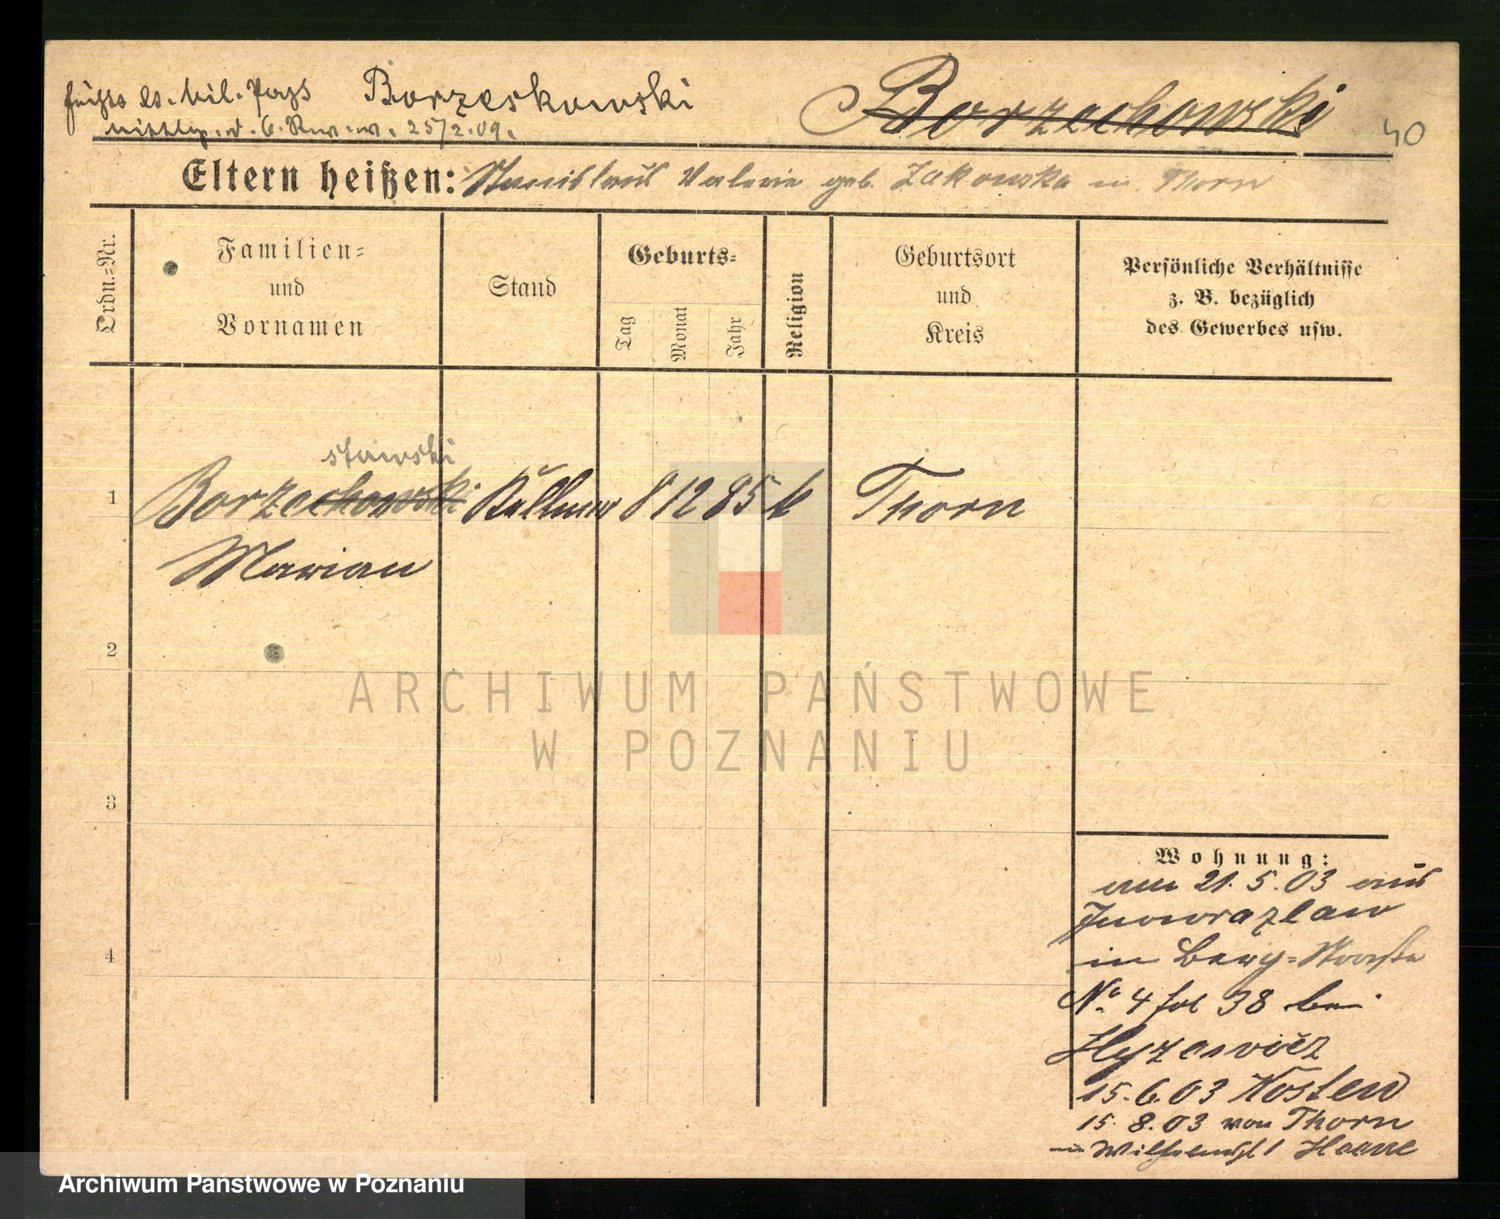 Borzeskowski
Borzechowski
40
25/2.09.
Eltern heißen: Stanislaus Valerie geb. Zakowska in Thorn
Ordn.-Nr.
Familien-
und
Vornamen
Stand
Geburts-
Tag
Monat
Jahr
Religion
Geburtsort
und
Kreis
Persönliche Verhältnisse
z. B. bezüglich
des Gewerbes usw.
1
Borzechowski Kellner 8 12 85 k Thorn
Marian
2
ARCHIWUM PAŃSTWOWE
W POZNANIU
3
4
Wohnung:
am 21.5.03 aus
Inowrazlaw
in Berg-Straße
No. 4 fol 38 bei
Hyzewicz
15.6.03 Kosten
15.8.03 von Thorn
Archiwum Państwowe w Poznaniu